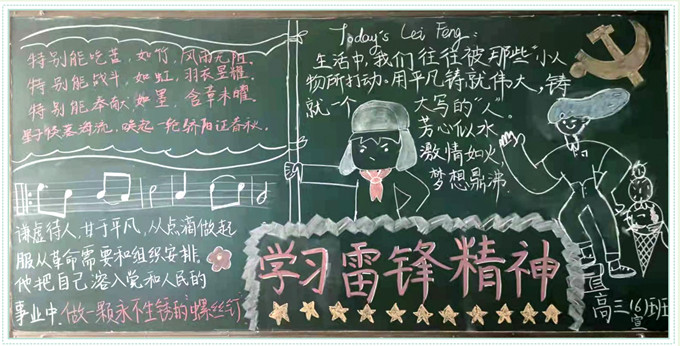 特别能吃苦,如竹,风雨无阻。
特别能战斗,如虹,羽衣星耀。
特别能奉献,如墨,含章未曜。
唤起一轮骄阳证春秋。
谦虚待人,甘于平凡,从点滴做起
服从革命需要和组织安排。
他把自己溶入党和人民的
事业中.做一颗永不生锈的螺丝钉
Today's Lei Feng:
生活中,我们往往被那些"小人
物所打动。用平凡铸就伟大,铸
就一个大写的"人"。
芳心似水
激情如火,
梦想鼎沸
学习雷锋精神
高三16班
宣